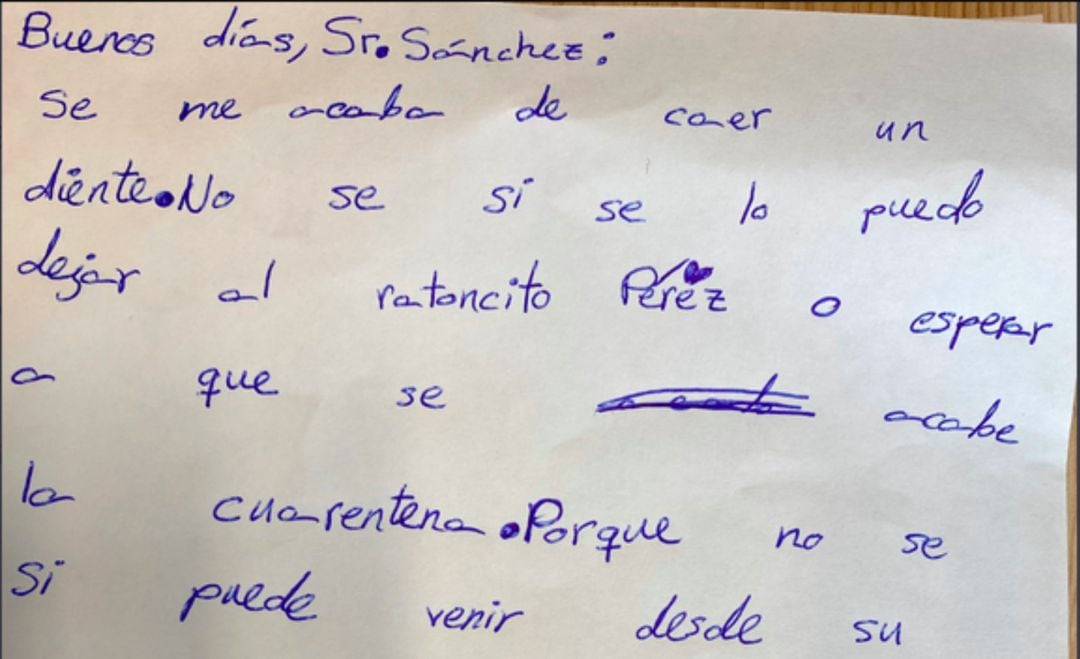 Buenos días, Sr. Sánchez:
Se me acaba de caer un
diente. No se si se lo puedo
dejar al ratoncito Pérez o esperar
a que se acabe
la cuarentena. Porque no se
si puede venir desde su